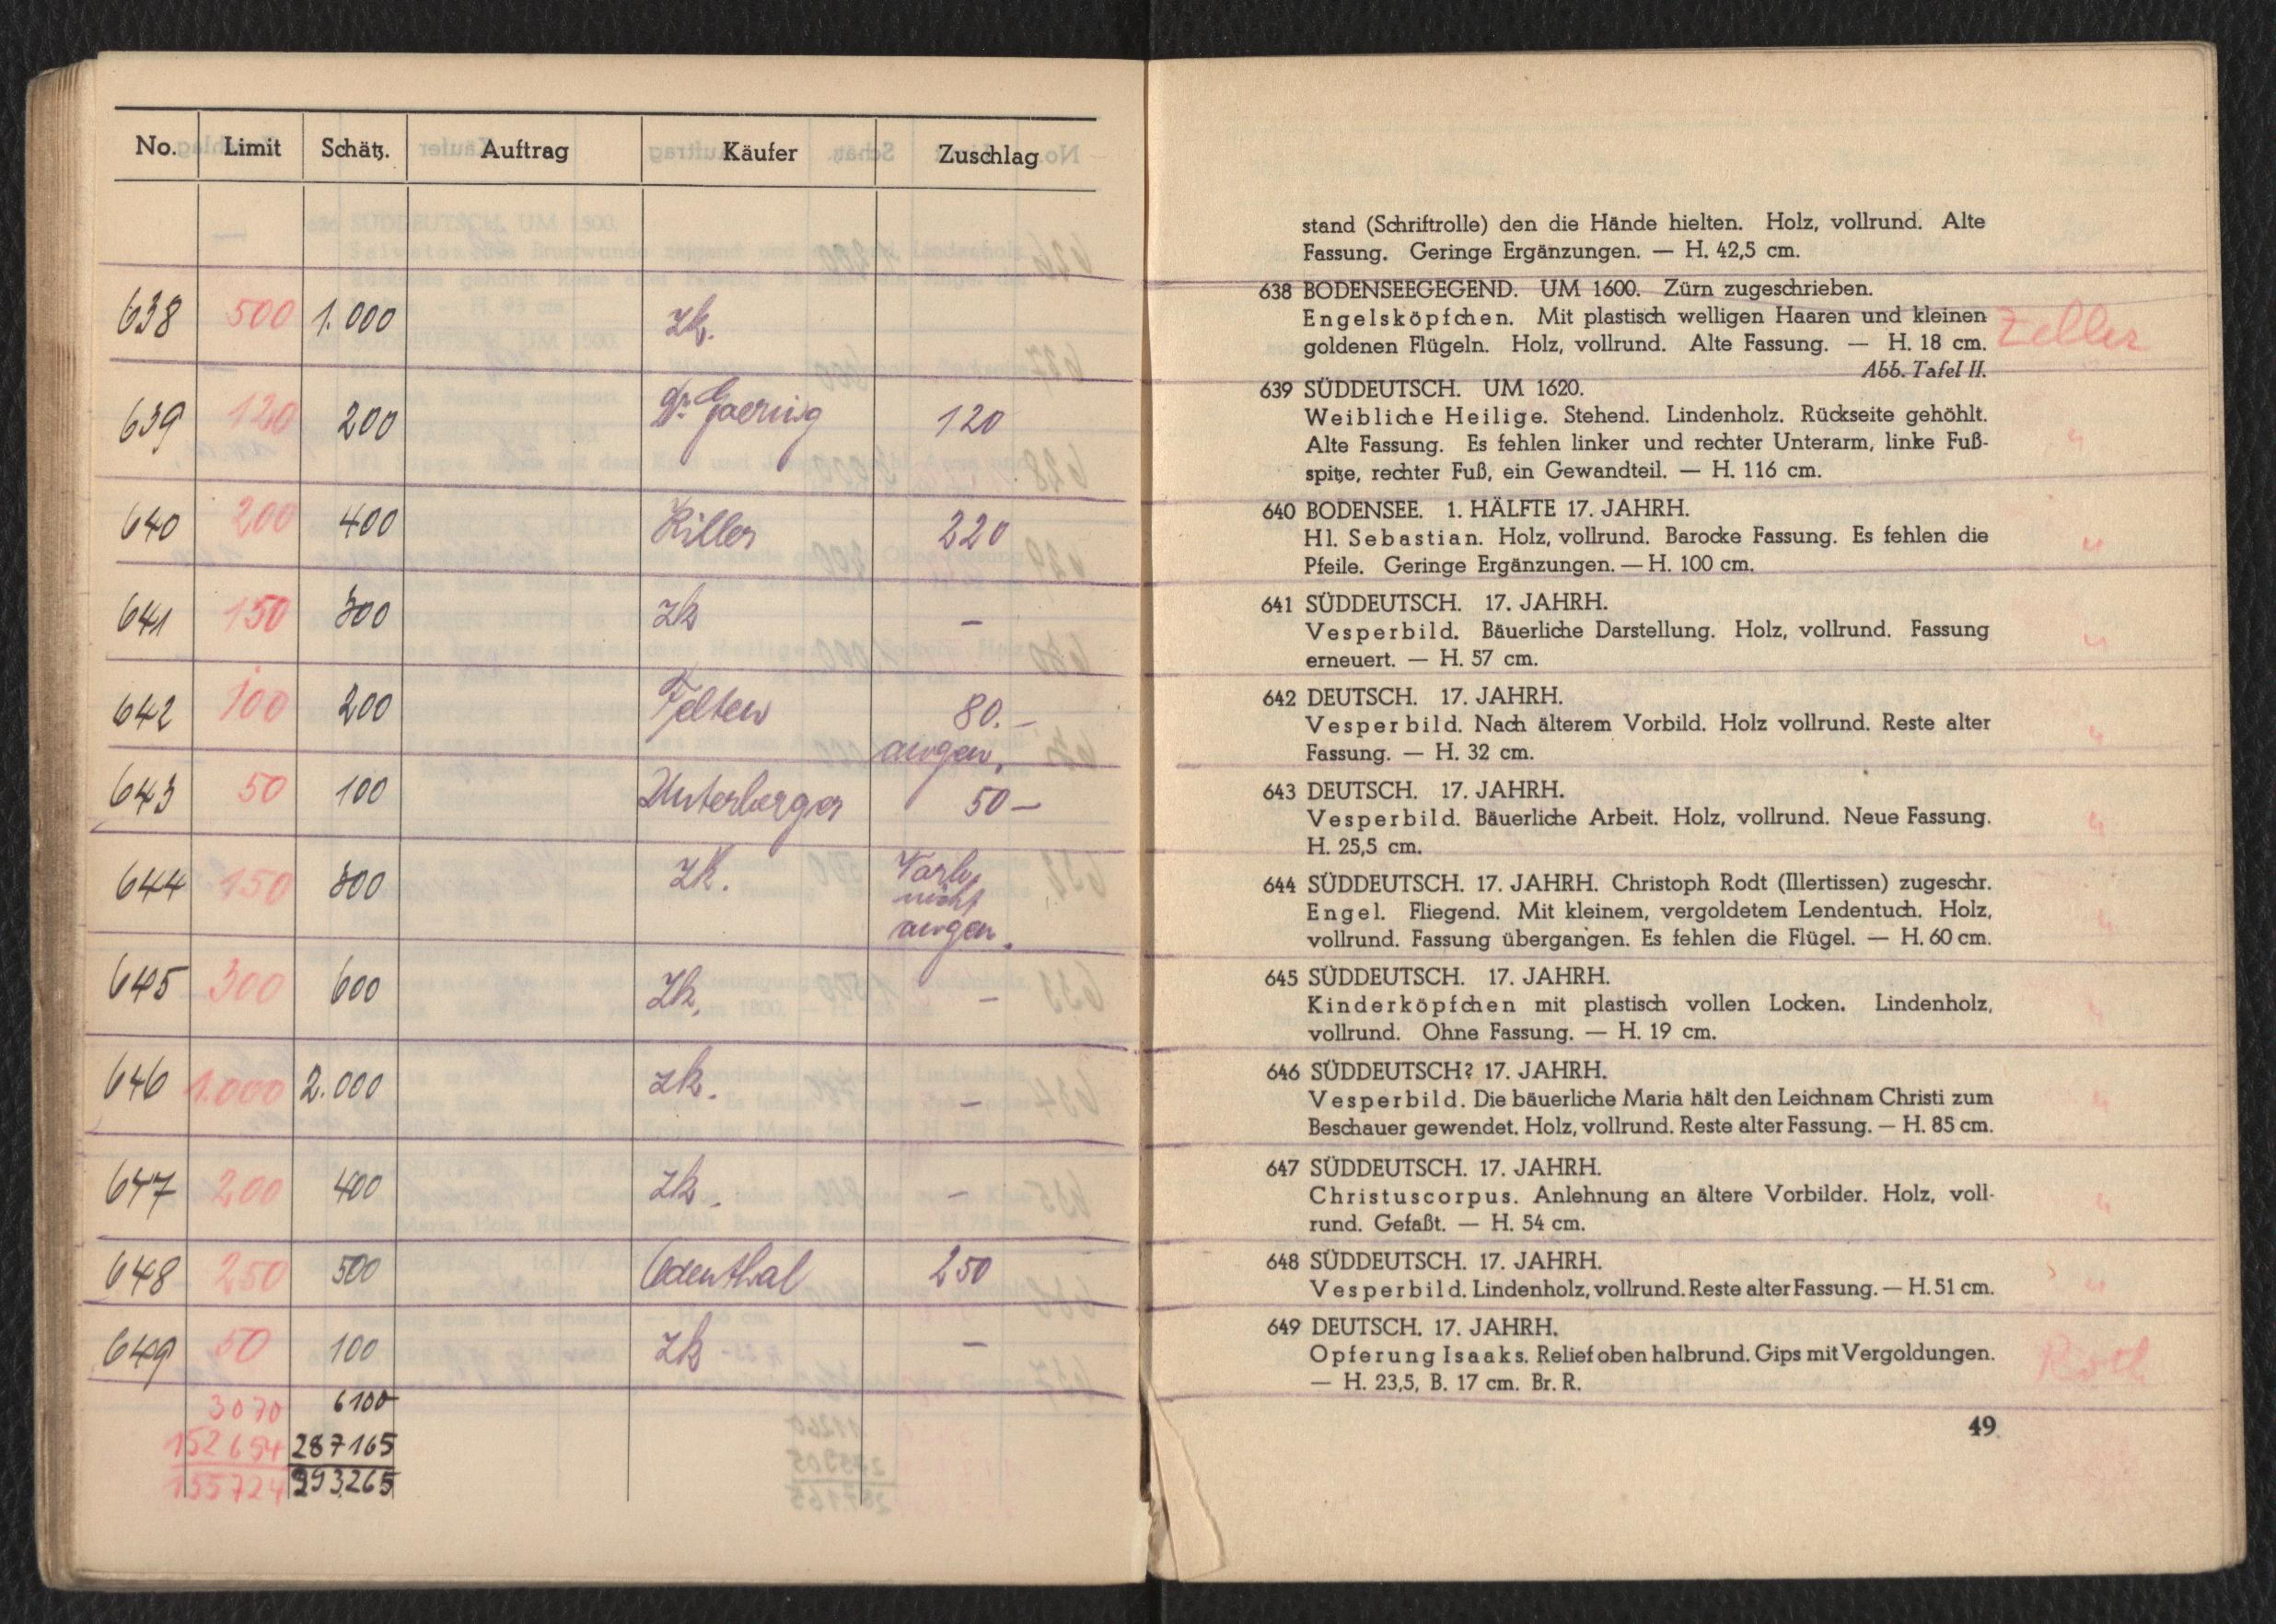 No. Limit Schätz. Auftrag Käufer Zuschlag
638 500 1.000 zk.
639 120 200 Dr. Goering 120
640 200 400 Killer 220
641 150 300 zk –
642 100 200 Felten 80.–
angen.
643 50 100 Unterberger 50 –
644 150 300 zk. Vorb.
nicht
angen.
645 300 600 zk. –
646 1.000 2.000 zk. –
647 200 400 zk. –
648 250 500 Odenthal 250
649 50 100 zk –
3070 6100
152654 287165
155724 293265
stand (Schriftrolle) den die Hände hielten. Holz, vollrund. Alte
Fassung. Geringe Ergänzungen. — H. 42,5 cm.
638 BODENSEEGEGEND. UM 1600. Zürn zugeschrieben.
Engelsköpfchen. Mit plastisch welligen Haaren und kleinen
goldenen Flügeln. Holz, vollrund. Alte Fassung. — H. 18 cm.
Zeller
Abb. Tafel II.
639 SÜDDEUTSCH. UM 1620.
Weibliche Heilige. Stehend. Lindenholz. Rückseite gehöhlt.
Alte Fassung. Es fehlen linker und rechter Unterarm, linke Fuß- "
spitze, rechter Fuß, ein Gewandteil. — H. 116 cm.
640 BODENSEE. 1. HÄLFTE 17. JAHRH.
Hl. Sebastian. Holz, vollrund. Barocke Fassung. Es fehlen die "
Pfeile. Geringe Ergänzungen. — H. 100 cm.
641 SÜDDEUTSCH. 17. JAHRH.
Vesperbild. Bäuerliche Darstellung. Holz, vollrund. Fassung "
erneuert. — H. 57 cm.
642 DEUTSCH. 17. JAHRH.
Vesperbild. Nach älterem Vorbild. Holz vollrund. Reste alter "
Fassung. — H. 32 cm.
643 DEUTSCH. 17. JAHRH.
Vesperbild. Bäuerliche Arbeit. Holz, vollrund. Neue Fassung. "
H. 25,5 cm.
644 SÜDDEUTSCH. 17. JAHRH. Christoph Rodt (Illertissen) zugeschr.
Engel. Fliegend. Mit kleinem, vergoldetem Lendentuch. Holz, "
vollrund. Fassung übergangen. Es fehlen die Flügel. — H. 60 cm.
645 SÜDDEUTSCH. 17. JAHRH.
Kinderköpfchen mit plastisch vollen Locken. Lindenholz, "
vollrund. Ohne Fassung. — H. 19 cm.
646 SÜDDEUTSCH? 17. JAHRH.
Vesperbild. Die bäuerliche Maria hält den Leichnam Christi zum "
Beschauer gewendet. Holz, vollrund. Reste alter Fassung. — H. 85 cm.
647 SÜDDEUTSCH. 17. JAHRH.
Christuscorpus. Anlehnung an ältere Vorbilder. Holz, voll- "
rund. Gefaßt. — H. 54 cm.
648 SÜDDEUTSCH. 17. JAHRH.
Vesperbild. Lindenholz, vollrund. Reste alter Fassung. — H. 51 cm. "
649 DEUTSCH. 17. JAHRH.
Opferung Isaaks. Relief oben halbrund. Gips mit Vergoldungen. Roth
— H. 23,5, B. 17 cm. Br. R.
49